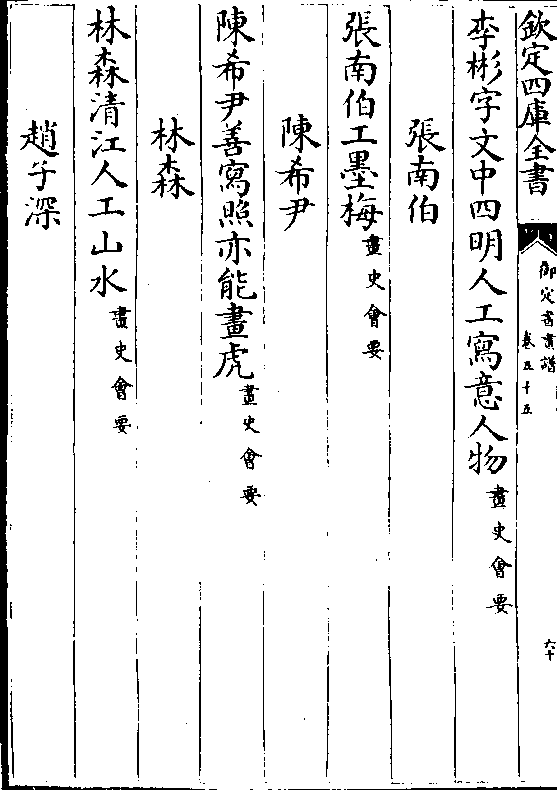 欽定四庫全書
御定書畫譜
卷五十五
六十
李彬字文中四明人工寫意人物畫史會要
張南伯
張南伯工墨梅畫史會要
陳希尹
陳希尹善寫照亦能畫虎畫史會要
林森
林森清江人工山水畫史會要
趙子深